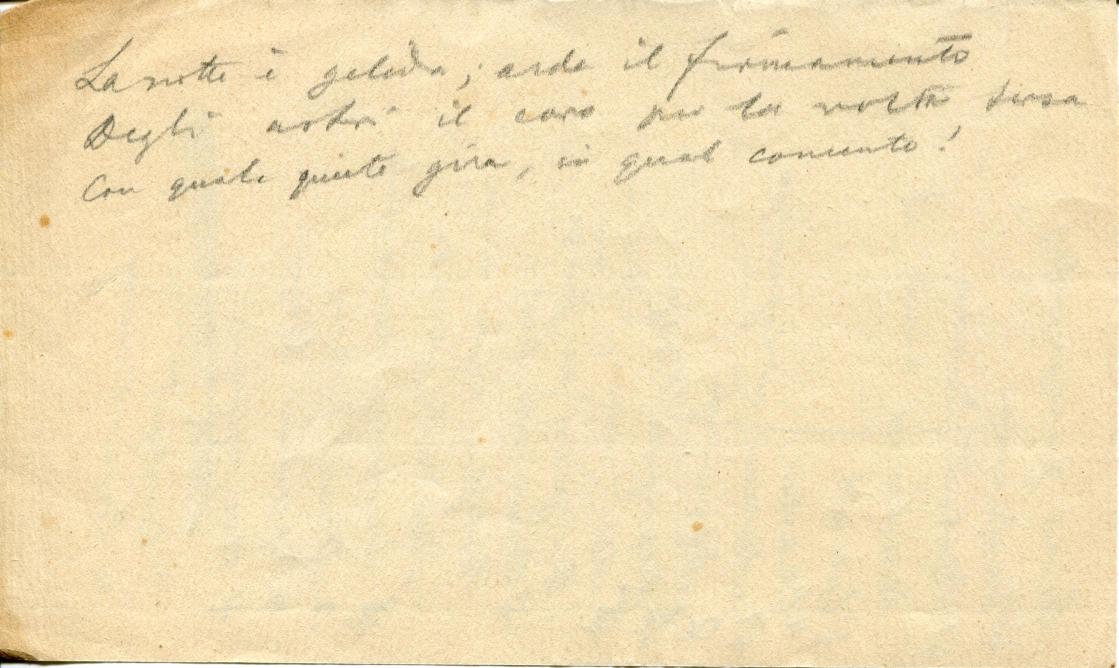 La notte è gelida; arde il firmamento
Degli astri il coro per la volta tersa
Con quale quiete gira, in qual concento!